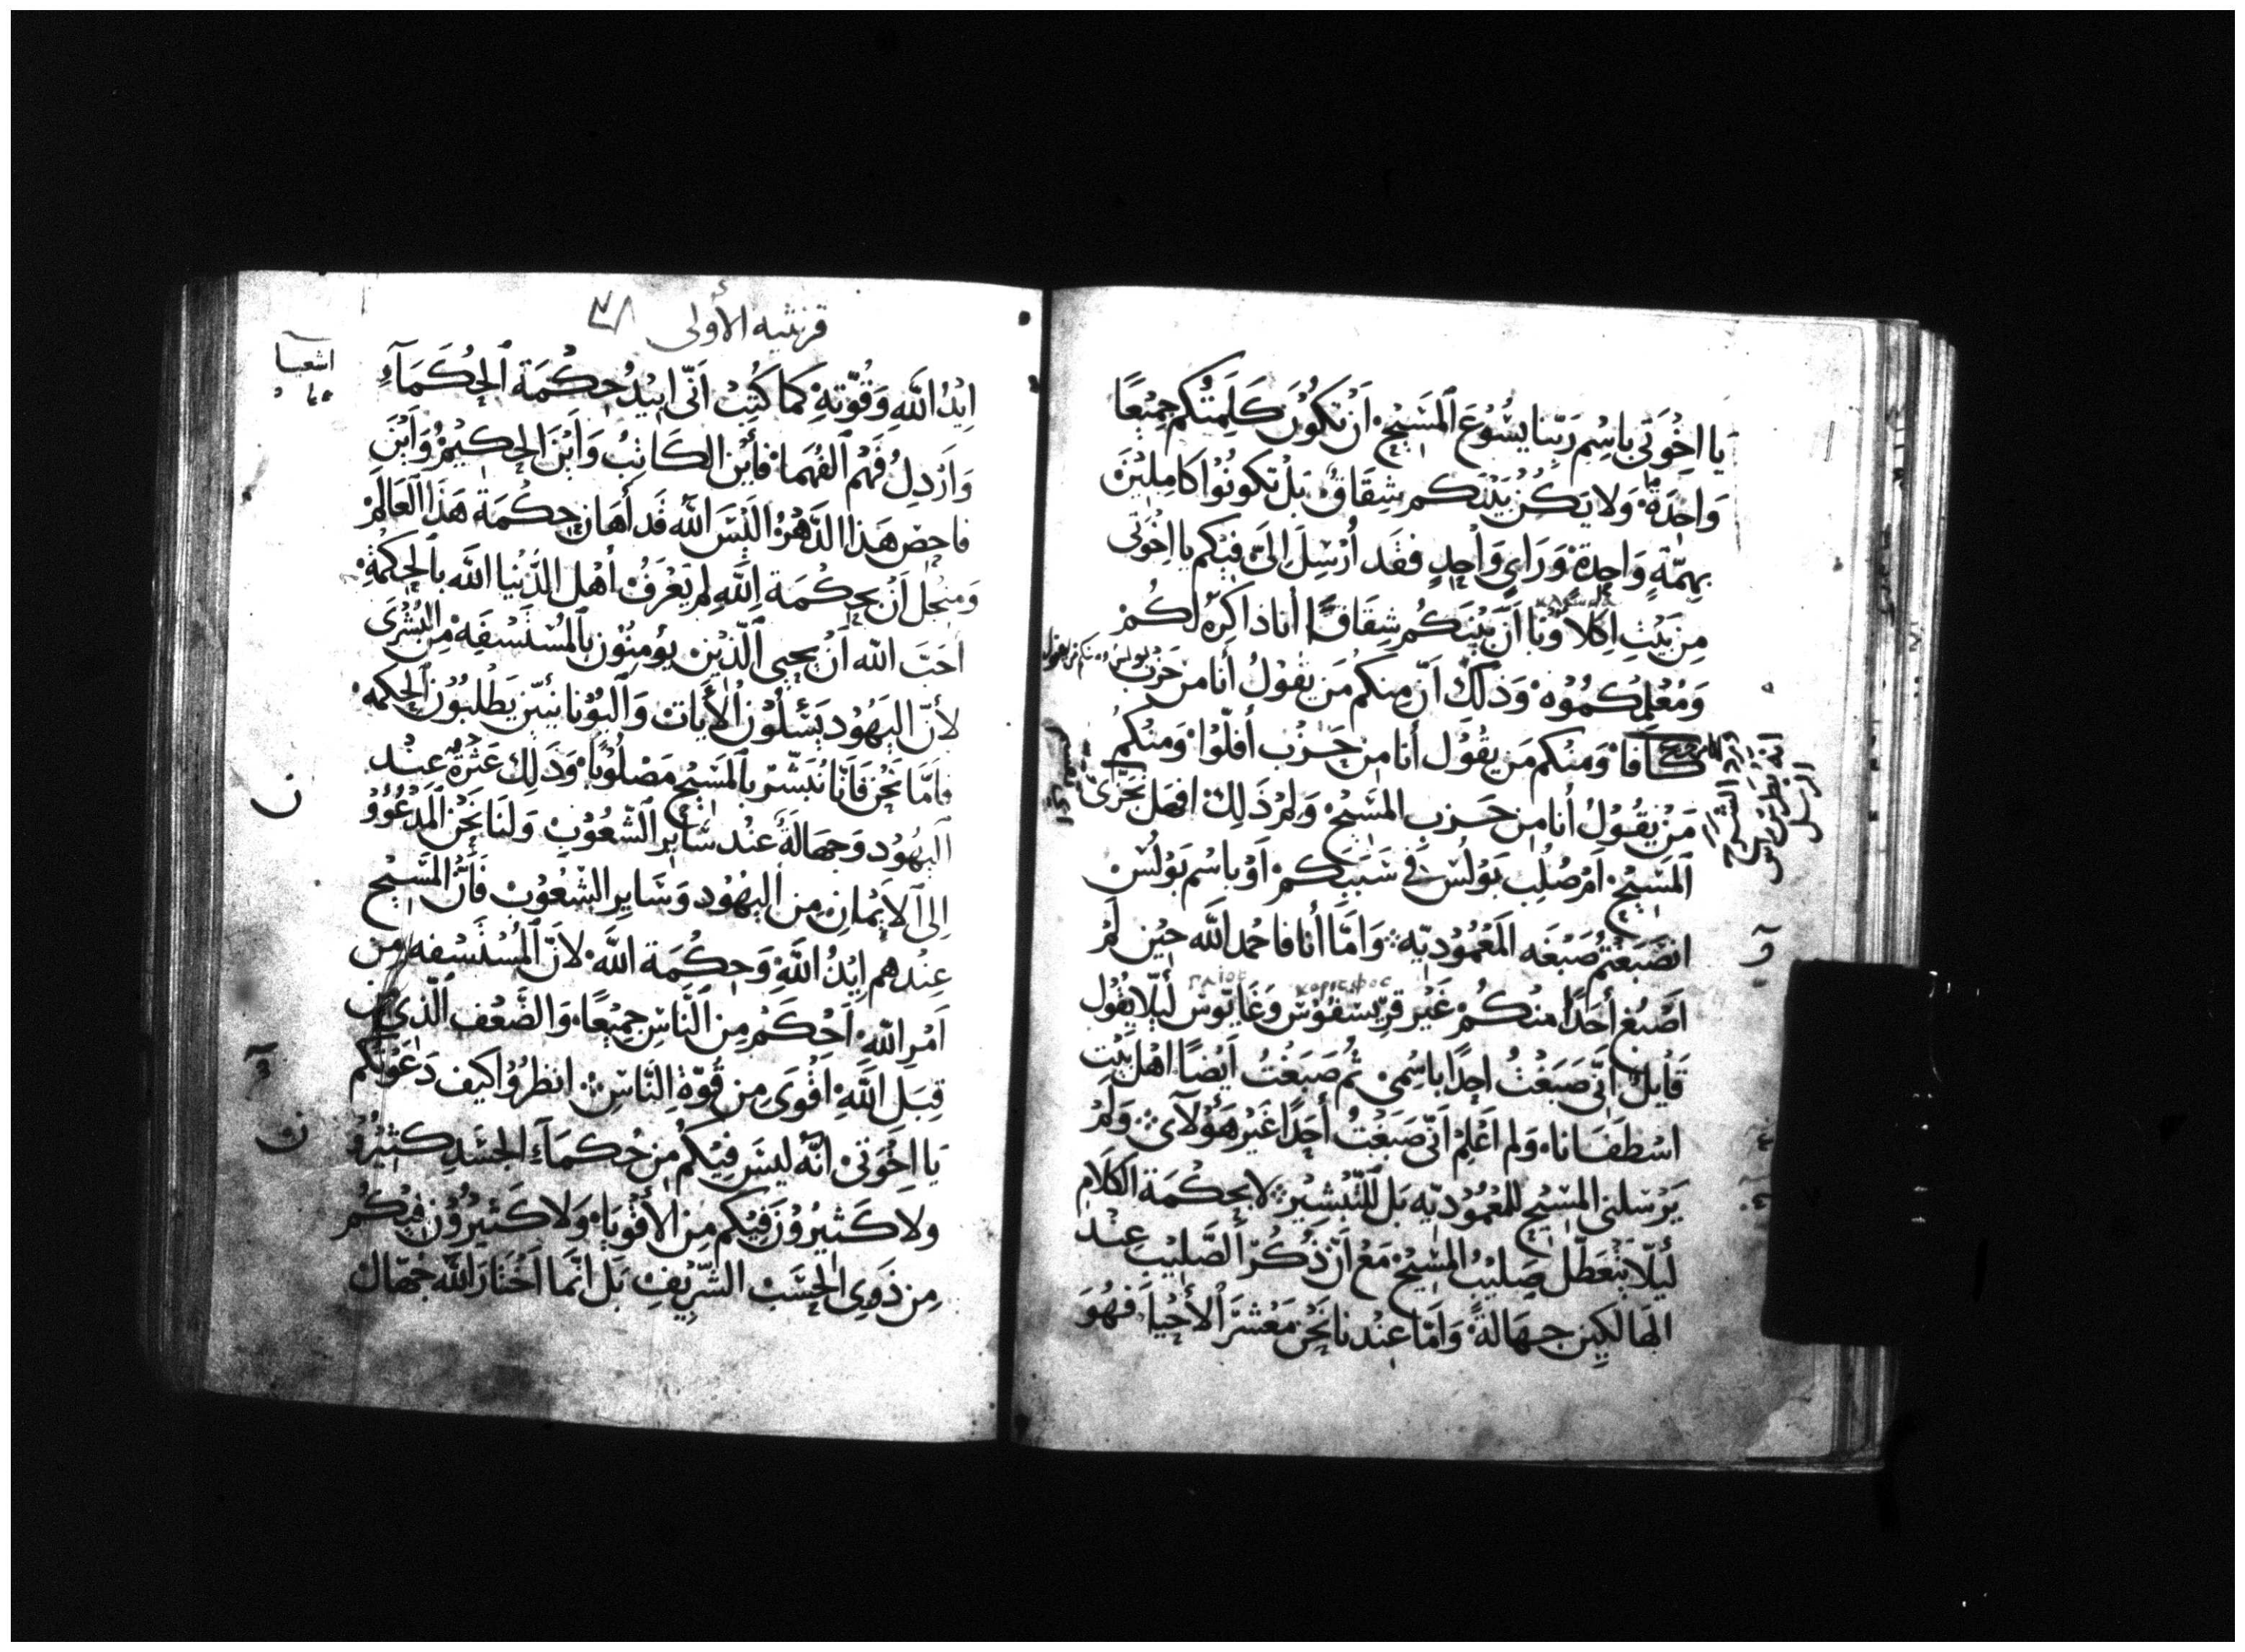 يا اخْوَتي باسْم رَبّنا يَسُوْعَ المَسَيْحِ أنْ تَكوُنَ كَلِمَتُكم جَمِيْعًا
وَاحِدَةً وَلا يَكُنْ بَيْنَكم شِقَاقٌ بَلْ تَكونُوْا كامِليْنَ
بِهمّةٍ وَاحِدَةٍ وَرَايٍ وَاحِدٍ فقَد أُرْسِلَ اليَّ فيْكم يا اخْوَتي
مِن بَيْت اكلاوُنا أنّ بَيْنَكُم شِقَاقًا أنا ذاكِرُه لكُمْ
وَمُعْلِمُكُمُوْه وَذلكَ أنّ مِنكم مَن يقُوْلُ أنا من حَزْب
بولس ومنكم من يقول
كَافَا وَمنْكم مَن يقُوْل أنا من حَزْب أفلّوا وَمنْكُم
مَنْ يَقُوْلُ أنا من حَزب المسَيْح وَلمْ ذَلِكَ افهَل تَجَزّى
المَسَيْح امْ صُلِب بَوْلُسْ في سَبَبكم اوْ باسْم بَوْلُسْ
انصَبَغْتُم صَبْغَه المَعْمُوْديّه وَامّا أنا فاحْمد اللّه حيْن لمْ
κορισφοσ
اصْبُغ أحَدًا منْكُمْ غَيْر قرِسْفوُسْ وَغَايّوس ليَلّا يقُول
قَايل أنّي صَبَغْتُ احَدًا باسْمي ثُم صَبَغْتُ ايْضًا اهْل بَيْت
اسْطَفَانَا وَلم اعْلمْ انّي صَبَغْتُ أحَدًا غَيْر هَؤُلآي وَلمْ
يَرْسلني المسَيْح للمَعْمُوْديّه بَل للتّبْشيْر لا بحكْمَة الكَلَام
ليَلّا يَتَعَطّل صَليْبُ المسَيْح مَعْ انّ ذكْرَ الصَّليْب عنْد
الهَالكيْن جهَالةً وَامّا عنْدنا نحَن مَعْشرَ الأحْيا فهُوَ
قرنثيه الأولى
ايْدُ اللّهِ وَقُوّتهِ كما كتِبْ انّي ابيْدُ حكْمَة الحُكَمَآءِ
اشعيا
وَازْدلُ فَهْم الفُهَما فأيْن الكَاتبُ وَايْنَ الحكيْمُ وَايْنَ
فاحِص هَذا الدَّهْر اليْسَ اللّه قَد أهَان حكْمَة هَذا العَالَمْ
وَمنْجل انْ بحكْمَة اللّهِ لم يَعْرفْ أهْل الدّنْيا اللّه بالحِكْمَةِ
احَبّ اللّه انْ يحيي الّذيْن يؤمِنُوْن بالمُسْتَسْفَهْ مِن البُشْرَى
لأنّ اليَهُوْد يَسْئلُوْن الأيَات وَاليُوْنانيّيْن يَطْلبُوْن الحكمه
فامّا نحْن فانّا نُبَشّرْ بالمَسَيْح مَصْلُوْبًا وَذَلِكَ عَثْرَةٌ عنْد
اليَهُوْد وَجهَالةً عنْد سَاير الشّعُوْبِ وَلنَا نحَن المَدْعُوُوْ
إلى الإيْمانِ من اليهُوْد وَسَاير الشّعُوْبْ فَانّ المَسَيْح
عنْدهم ايْدُ اللّهِ وَحِكْمَة اللّهَ لأنّ المُسْتَسْفه من
امْر اللّهِ احْكَمْ من النّاسِ جميْعًا وَالضّعْف الّذي من
قِبَلِ اللّهِ اقْوَى من قُوّةِ النّاسِ انظرُوْا كيْف دَعْوَتكم
يَا اخْوَتي انّه ليسَ فيْكُم من حُكمَآءِ الجسَدِ كثيْرٌ
ولا كَثيرُوْن فيْكم من الأقْويَا وَلا كَثيْروُنَ فيْكُم
مِن ذَوي الحَسَبْ الشّريْفِ بَل انّما اخْتارَ اللّه جُهّال